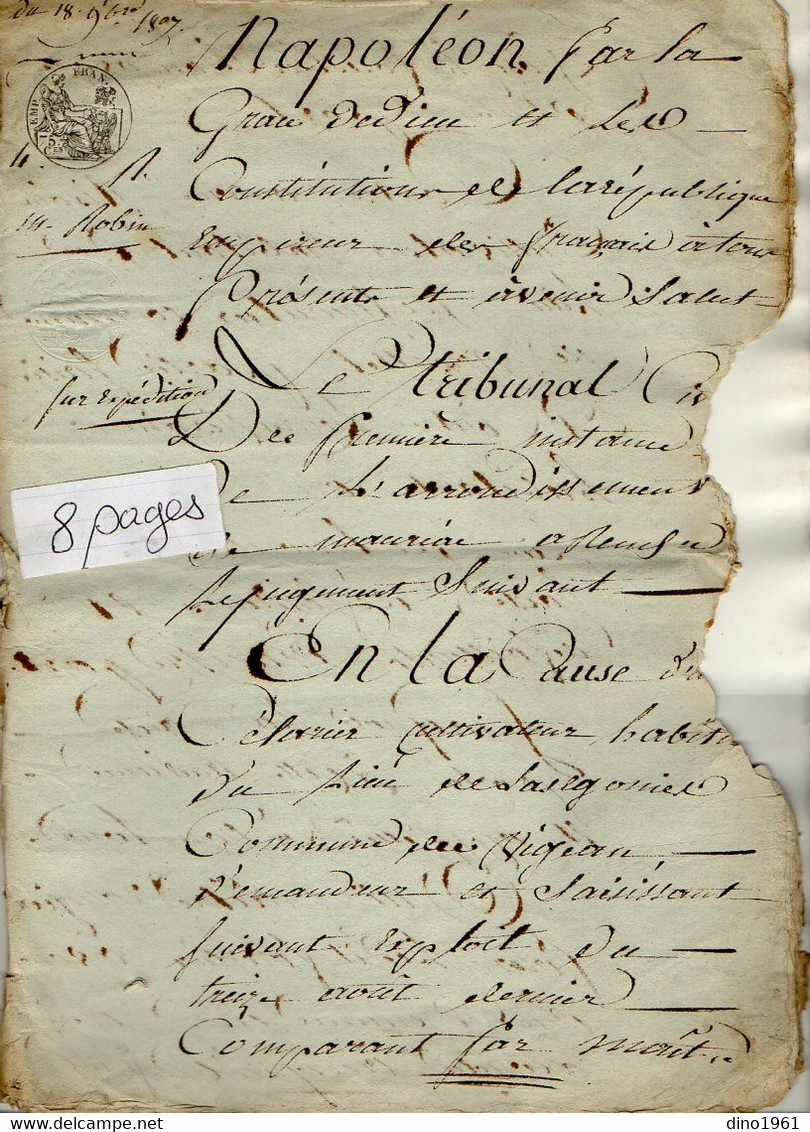 du 18 9bre 1807
Napoléon par la
EMP. FRAN.
Grace de Dieu et les
4. R.
Constitutions de la république
M. Robin
Empereur des français a tous
Présents et avenir Salut
Le tribunal Civ
sur Expédition
De première instance
De L'arrondissement
8 pages
De mauriac a Rendu
Le jugement Suivant
En la Cause d
cultivateur habit
Du Lieu de
Commune de Vigean
Demandeur et Saisissant
suivant Exploit du
treize août dernier
Comparant par maître
delcampe.net
dino1961